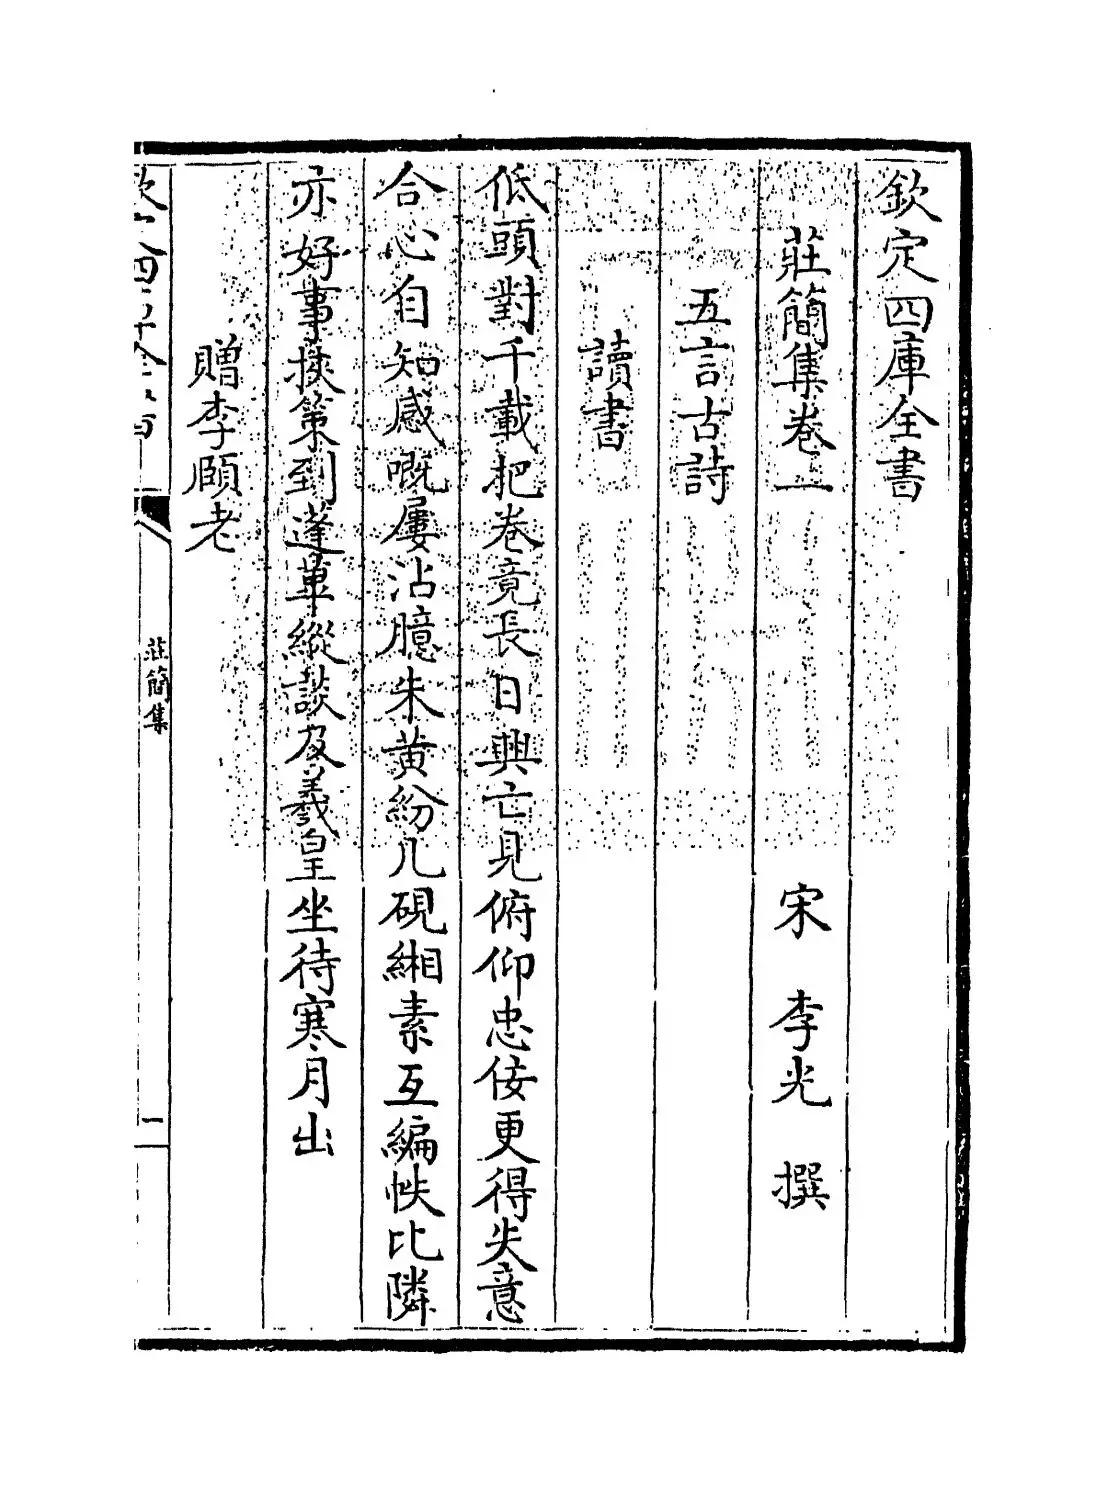 欽定四庫全書
莊簡集卷一
宋 李光 撰
五言古詩
讀書
低頭對千載把卷竟長日興亡見俯仰忠佞更得失意
合心自知感嘅屢沾臆朱黃紛几硯緗素互編帙比隣
亦好事挾策到蓬蓽縱談及羲皇坐待寒月出
贈李頤老
莊簡集
一